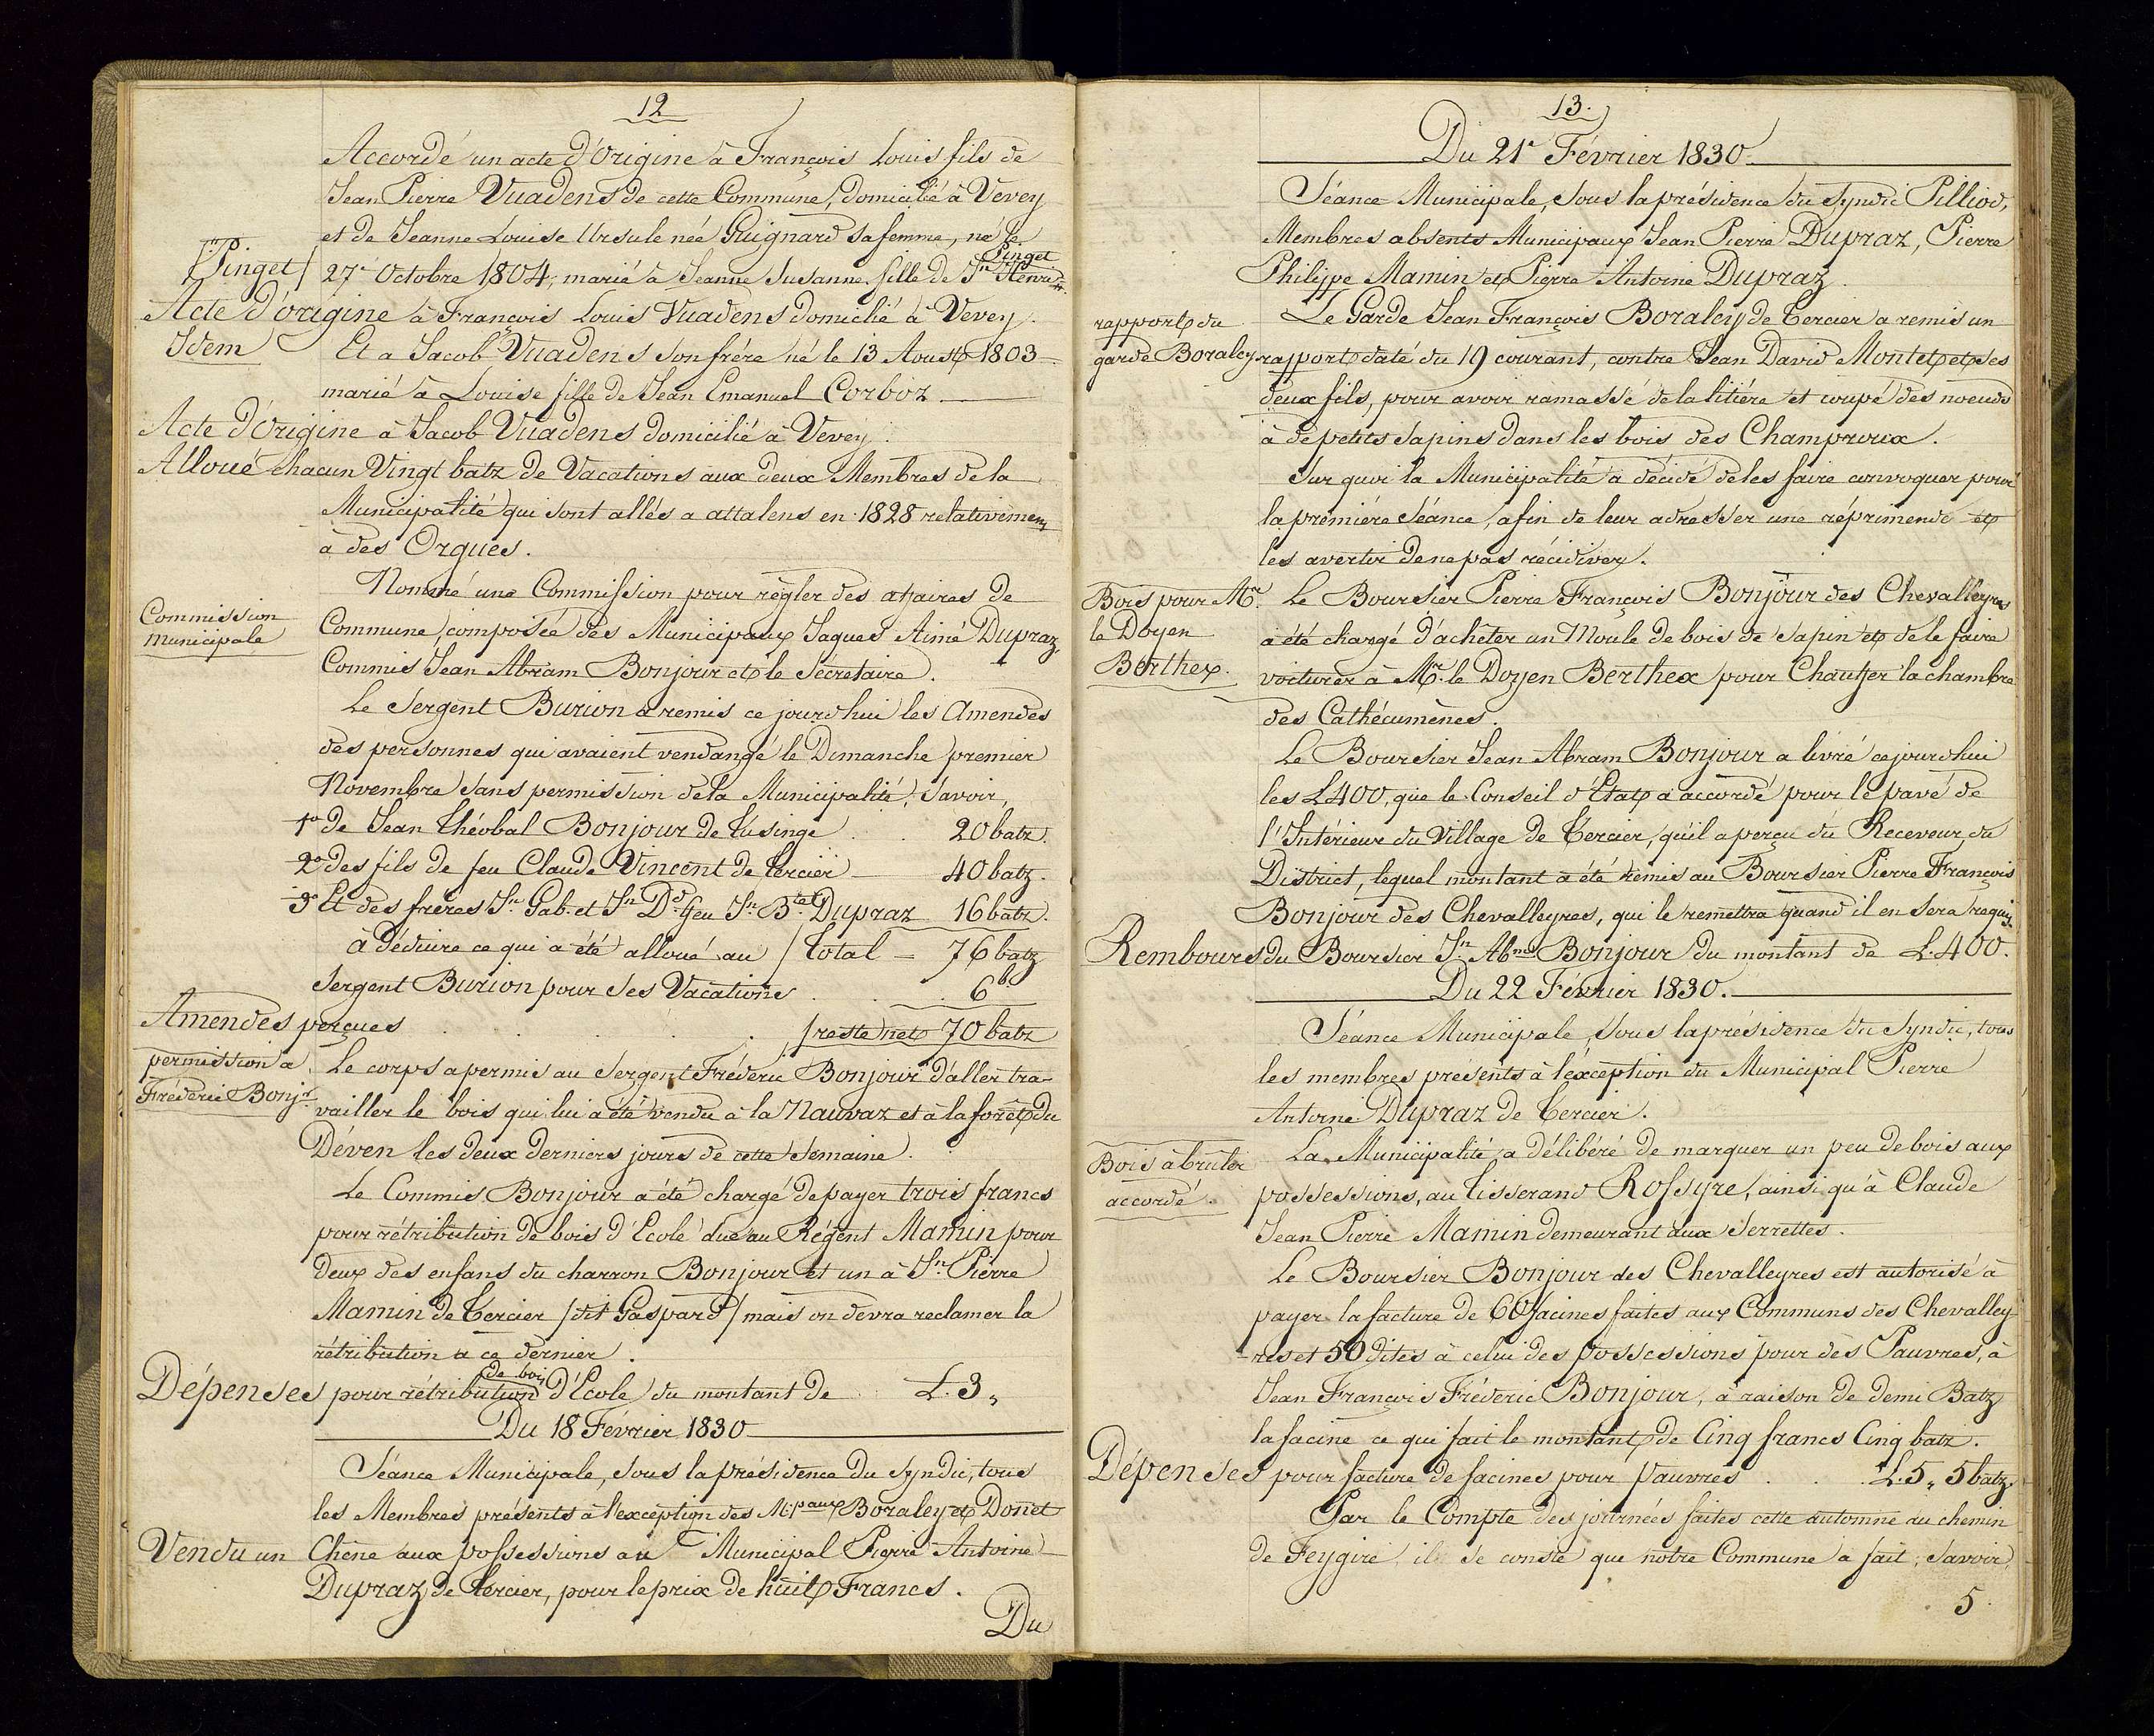 12
Accordé un acte d'Origine à François Louis fils de
Jean Pierre Vuadens de cette Commune, domicilié à Vevey
et de Jeanne Louise Ursule née Guignard sa femme, né le
Pinget
/Pinget/ 27e Octobre 1804, marié à Jeanne Susanne fille de Jn Henri
Acte d'origine à François Louis Vuadens domicilié à Vevey.
Idem Et a Jacob Vuadens son frère né le 13 Aoust 1803
marié à Louise fille de Jean Emanuel Corboz
Acte d'Origine à Jacob Vuadens domicilié à Vevey.
Alloué chacun Vingt batz de Vacations aux deux Membres de la
Municipalité qui sont allés a attalens en 1828 relativement
à des Orgues.
Nommé une Commission pour règler des afaires de
Commission Commune, composée des Municipaux Jaques Aimé Dupraz,
Municipale
Commis Jean Abram Bonjour et le Secretaire.
Le Sergent Burion a remis ce jourdhui les Amendes
des personnes qui avaient vendangé le Dimanche premier
Novembre sans permission de la Municipalité, savoir,
1o de Jean Théobal Bonjour de Tusinge . . 20 batz.
2o des fils de feu Claude Vincent de Tercier 40 batz.
3o Et des frères Jn Gab. et Jn Dd feu Jn Btel Dupraz 16 batz.
à déduire ce qui a été alloué au / total - 76 batz
Sergent Burion pour ses Vacations . . . 6 b.
Amendes perçues . . . . . /reste net 70 batz
permission a Le corps a permis au Sergent Fréderic Bonjour d'aller tra-
Fréderic Bonjr. vailler le bois qui lui a été vendu à la Nauvaz et à la forêt du
Déven les deux derniers jours de cette Semaine.
Le Commis Bonjour a été chargé de payer trois francs
pour rétribution de bois d'Ecole due au Régent Mamin pour
deux des enfans du charron Bonjour et un à Jn Pierre
Mamin de Tercier /dit Gaspard/ mais on devra reclamer la
rétribution a ce dernier.
de bois
Dépenses pour rétribution d'Ecole du montant de L. 3 „
Du 18 Février 1830
Séance Municipale, sous la présidence Du Syndic, tous
les Membres présents à l'exception des Mipaux Boraley et Donet
Vendu un Chêne aux possessions au Municipal Pierre Antoine
Dupraz de Tercier, pour le prix de huit Francs.
Du
13.
Du 21e Février 1830.
Séance Municipale, sous la présidence du Syndic Pilliod,
Membres absents Municipaux Jean Pierre Dupraz, Pierre
Philippe Mamin et Pierre Antoine Dupraz.
rapport du Le Garde Jean François Boraley de Tercier a remis un
garde Boraley. rapport daté du 19 courant, contre Jean David Montet et ses
deux fils, pour avoir ramassé de la litière et coupé des noeuds
à de petits sapins dans les bois des Champroux.
Sur quoi la Municipalité a décidé de les faire convoquer pour
la première séance, afin de leur adresser une réprimende et
les avertir de ne pas récidiver.
Bois pour Mr. Le Boursier Pierre François Bonjour des Chevalleyres
le Doyen a été chargé d'achêter un Moule de bois de sapin et de le faire
Berthex. voiturer à Mr. le Doyen Berthex pour Chauffer la chambre
des Cathécumènes.
Le Boursier Jean Abram Bonjour a livré ce jourdhui
les L 400, que le Conseil d'Etat a accordé pour le pavé de
l'Intérieur du Village de Tercier, qu'il a perçu du Receveur du
District, lequel montant a été remis au Boursier Pierre François
Bonjour des Chevalleyres, qui le remettra quand il en sera requis.
Rembours du Boursier Jn Abm Bonjour du montant de L. 400.
Du 22 Février 1830.
Séance Municipale, sous la présidence du Syndic, tous
les membres présents à l'éxception du Municipal Pierre
Antoine Dupraz de Tercier.
Bois à bruler La Municipalité a délibéré de marquer un peu de bois aux
accordé. possessions, au Tisserand Rossyre, ainsi qu'à Claude
Jean Pierre Mamin demeurant aux Serrettes.
Le Boursier Bonjour des Chevalleyres est autorisé à
payer la facture de 60 facines faites aux Communs des Chevalley
-res et 50 dites à celui des possessions pour des Pauvres, à
Jean François Fréderic Bonjour, à raison de demi Batz
la facine ce qui fait le montant de Cinq francs Cinq batz.
Dépenses pour facture de facines pour Pauvres . . . L. 5 „ 5 batz
Par le Compte des journées faites cette automne au chemin
de Feygire, il se conste que notre Commune a fait, savoir,
5